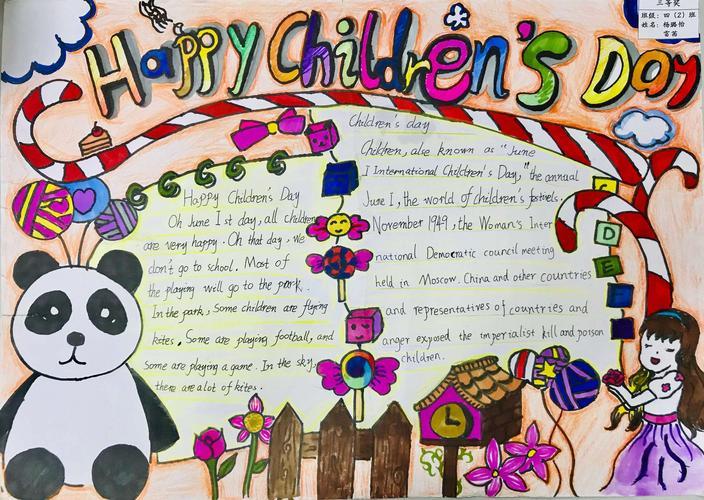 三等奖
班级：四（2）班
姓名：杨璐怡
富茜
Happy Children's Day
Happy Children's Day
Oh June 1st day, all children
are very happy. Oh that day, we
don't go to school. Most of
the playing will go to the park.
In the park, some children are flying
kites. Some are playing football, and
some are playing a game. In the sky,
there are alot of kites.
Children's day
Children, also known as "June
1 International Children's Day," the annual
June 1, the world of children's festivels.
November 1949, the Woman's Inter
national Democratic council meeting
held in Moscow. China and other countries
and representatives of countries and
anger exposed the imperialist kill and poison
children.
C
D
E